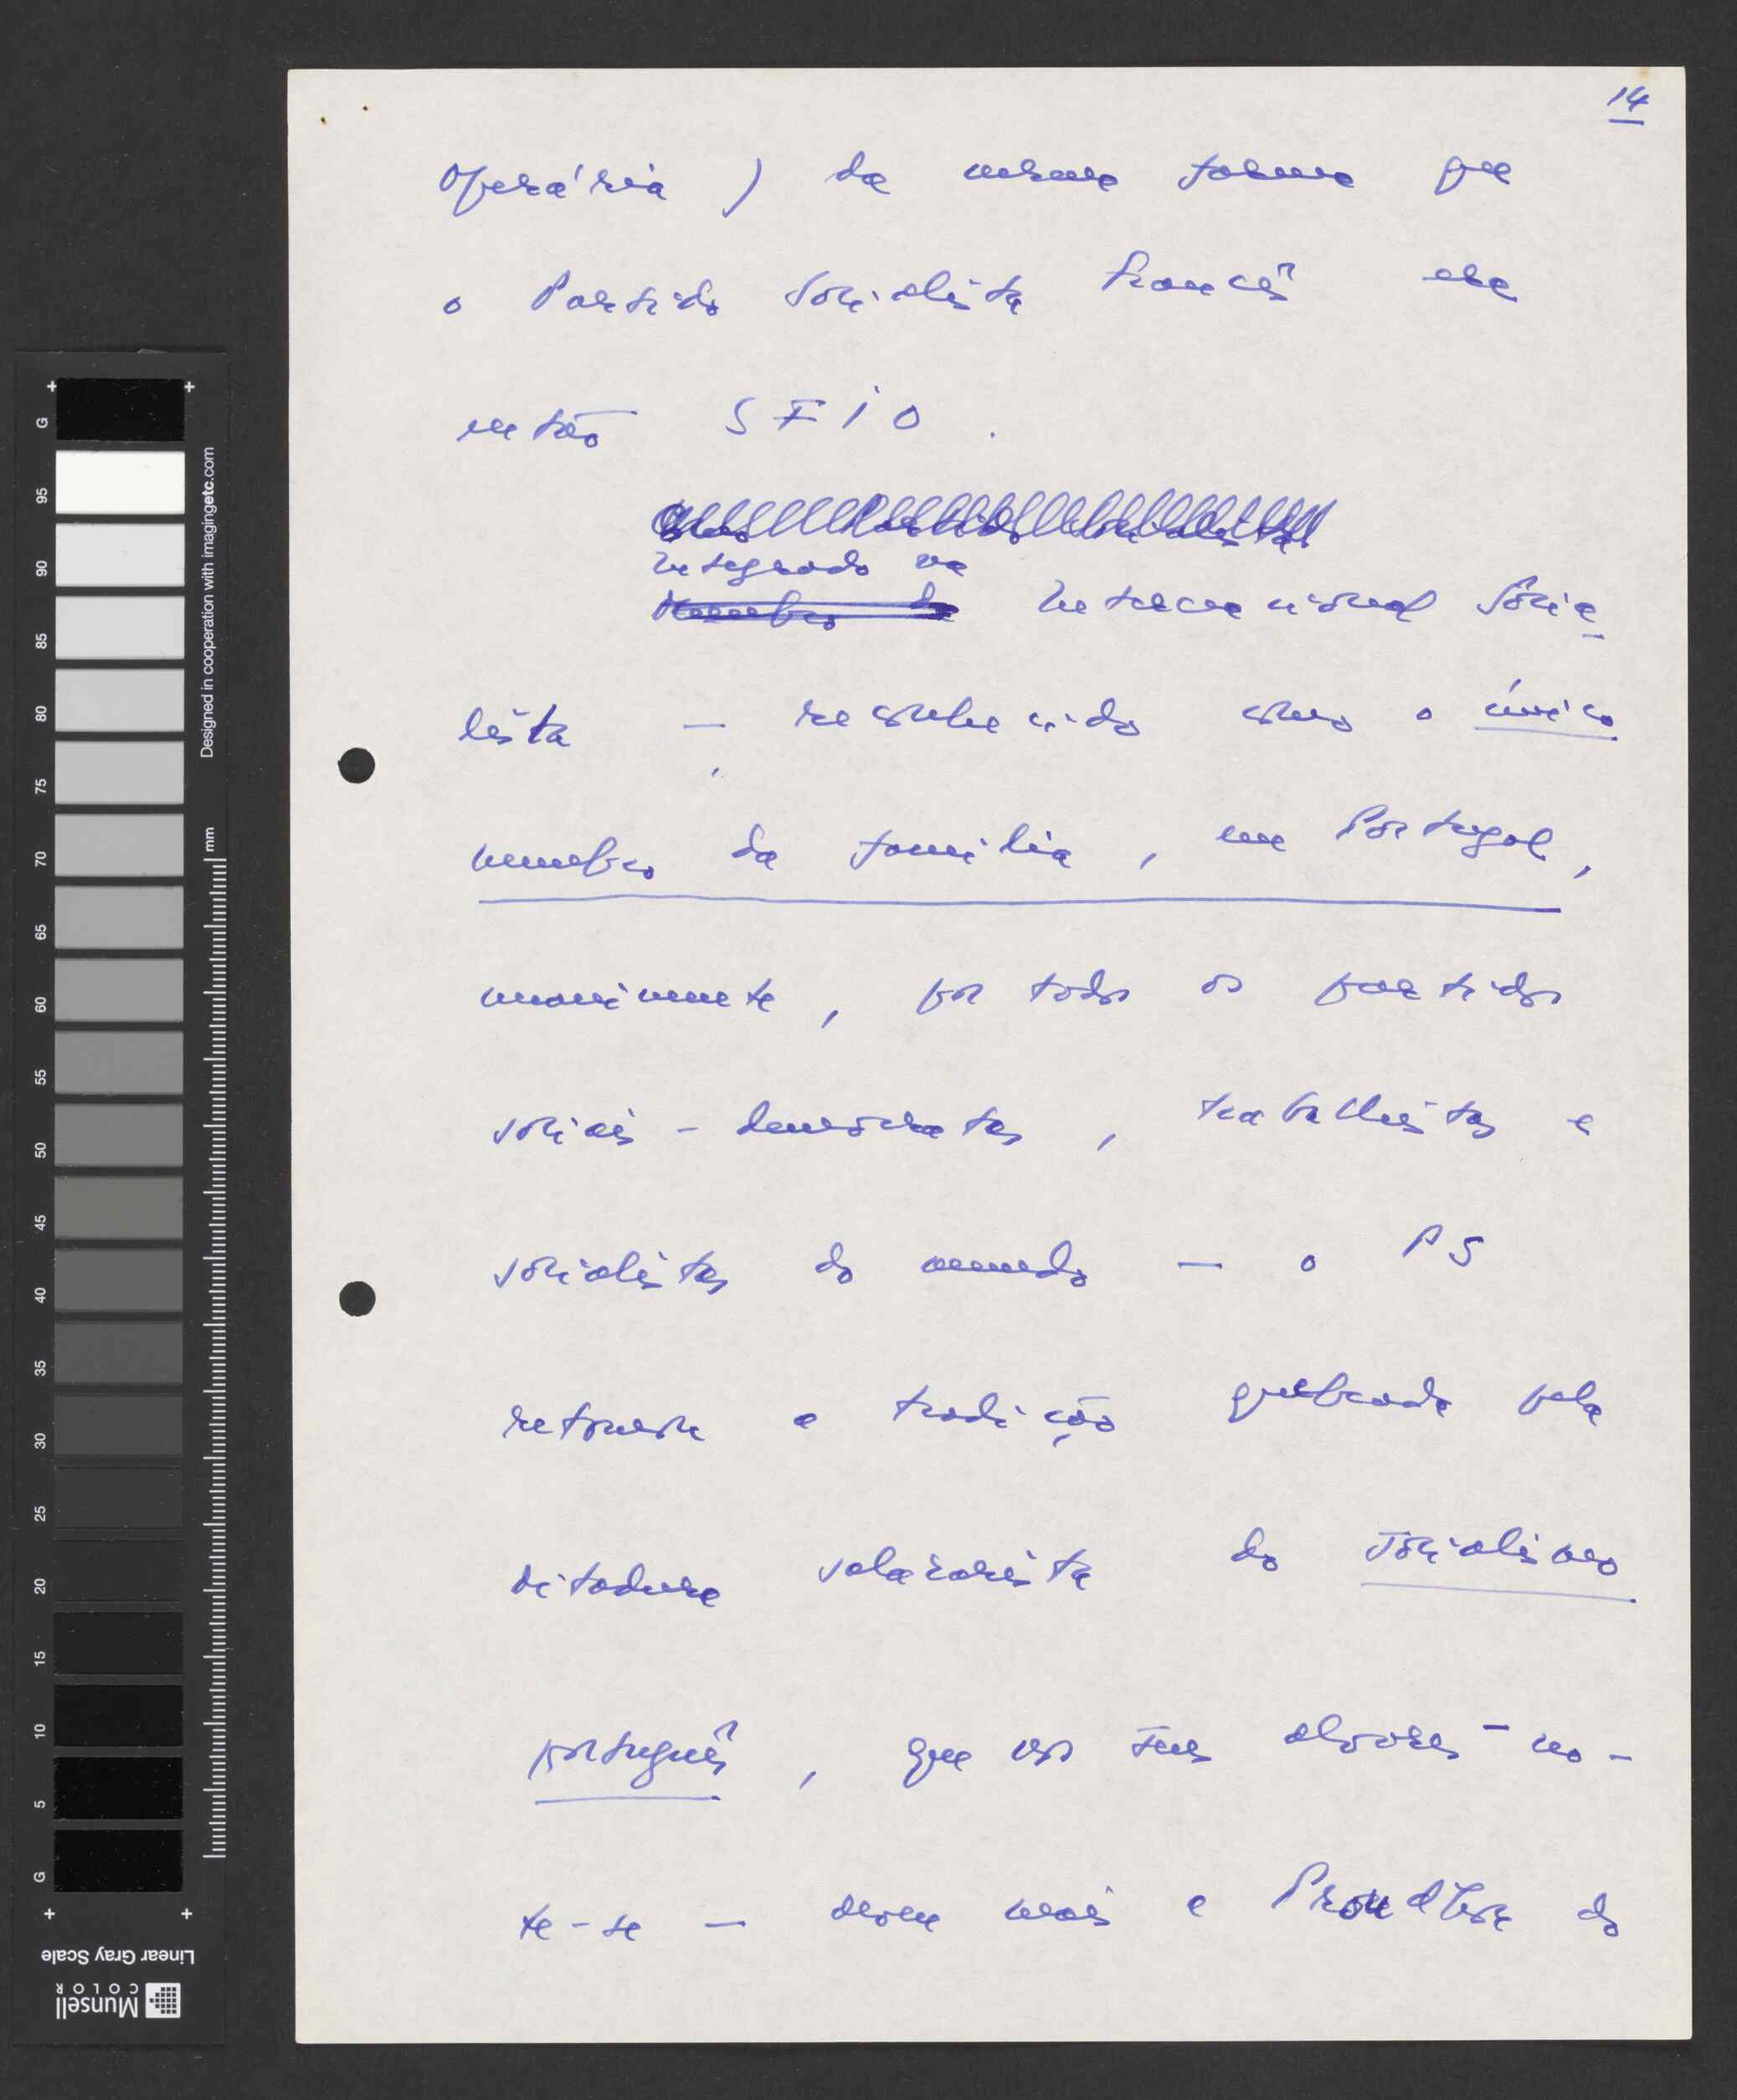 14
operária) da mesma forma que
o Partido Socialista Francês era
então SFIO.
Integrado na
Membro da Internacional Socia
lista — reconhecido como o único
membro da família, em Portugal,
unanimemente, por todos os partidos
sociais-democratas, trabalhistas e
socialistas do mundo — o PS
retomou a tradição quebrada pela
ditadura salazarista do socialismo
português, que nos seus alvores - no-
te-se — deveu mais a Proudhon do
G 95 90 85 80 75 70 65 60 55 50 45 40 35 30 25 20 15 10 5 G
Designed in cooperation with imagingetc.com
mm
Linear Gray Scale
Munsell
COLOR